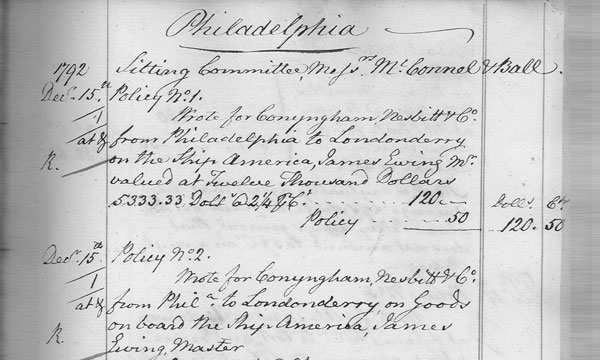 Philadelphia
1792 Sitting Committee, Mess.rs Mc.Connel & Ball.
Dec.r 15.th Policy No.1.
1 Wrote for Conyngham, Nesbitt & Co.
at & from Philadelphia to Londonderry
R. on the Ship America, James Ewing Mr.
valued at Twelve Thousand Dollars
5333.33 Doll.s @ 2¼ 120.—
Doll.s C.ts
Policy 50 120. 50
Dec.r 15.th Policy No.2.
1 Wrote for Conyngham, Nesbitt & Co.
at & from Phil.a to Londonderry on Goods
on board the Ship America, James
R. Ewing, Master